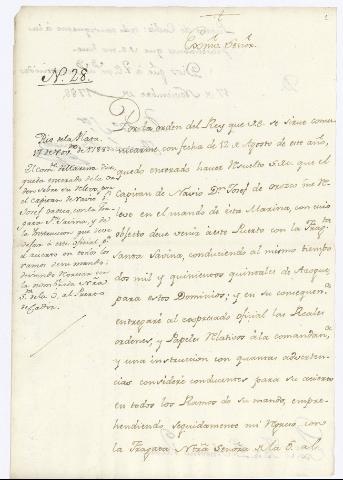 Exmo. Señor.
N. 28.
Rio de la Plata.
17 de Nov.re de 1788.
El Com.te de Marina
enterado de la or-
den sobre su relevo, por
el capitan de Navio D.n
Josef Orozco, con la Fra-
gata S.ta Savina, y de
la Instruccion que deve
dejar à este oficial p.a
el acierto en todos los
ramos de su mando,
con
la nombrada N.tra
S.ra de la O, al Puerto
de Cadiz.
Por la orden del Rey que V.E. se sirve comu-
nicarme, con fecha de 12 de Agosto de este año,
quedo enterado haver resuelto S.M. que el
Capitan de Navio D.n Josef de Orozco me re-
leve en el mando de esta Marina, con cuio
objecto deve venir à este Puerto con la Frag.ta
Santa Savina, conduciendo al mismo tiempo
dos mil y quinientos quintales de Azogue
para estos Dominios; y en su consequen.a
entregaré al expresado oficial las Reales
ordenes, y Papeles relativos à la comandan.a
y una instruccion con quantas adverten-
cias consideré conducentes para su acierto
en todos los Ramos de su mando, empre-
hendiendo seguidamente mi regreso con
la Fragata Ntrã Señora de la O. al